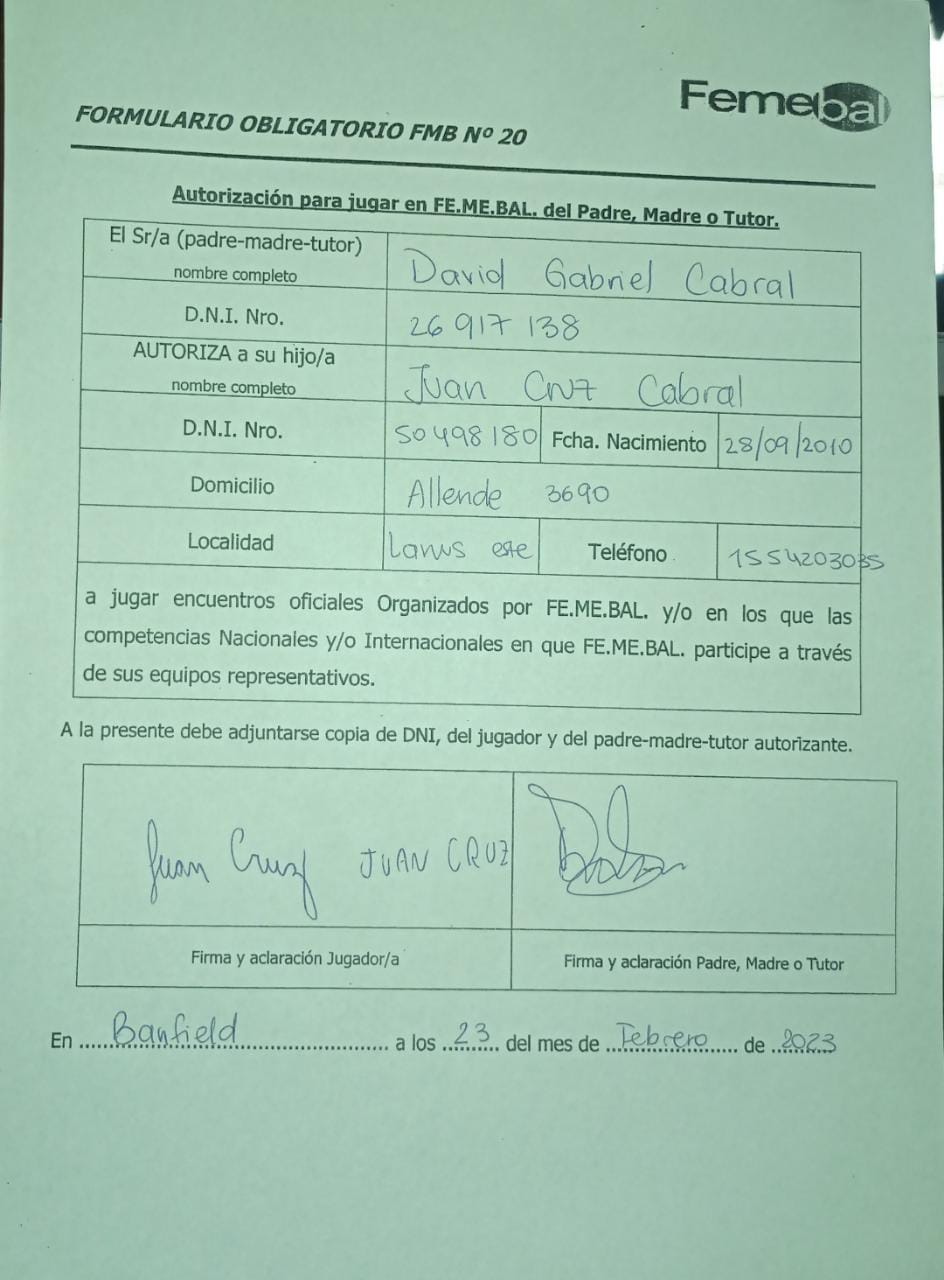 Femebal
FORMULARIO OBLIGATORIO FMB Nº 20
Autorización para jugar en FE.ME.BAL. del Padre, Madre o Tutor.
El Sr/a (padre-madre-tutor)
nombre completo
David Gabriel Cabral
D.N.I. Nro.
26 917 138
AUTORIZA a su hijo/a
nombre completo
Juan Cruz Cabral
D.N.I. Nro. 50 498 180 Fcha. Nacimiento 28/09/2010
Domicilio Allende 3690
Localidad Lanus este Teléfono 1554203035
a jugar encuentros oficiales Organizados por FE.ME.BAL. y/o en los que las
competencias Nacionales y/o Internacionales en que FE.ME.BAL. participe a través
de sus equipos representativos.
A la presente debe adjuntarse copia de DNI, del jugador y del padre-madre-tutor autorizante.
Juan Cruz JUAN CRUZ
Firma y aclaración Jugador/a Firma y aclaración Padre, Madre o Tutor
En Banfield a los 23 del mes de Febrero de 2023